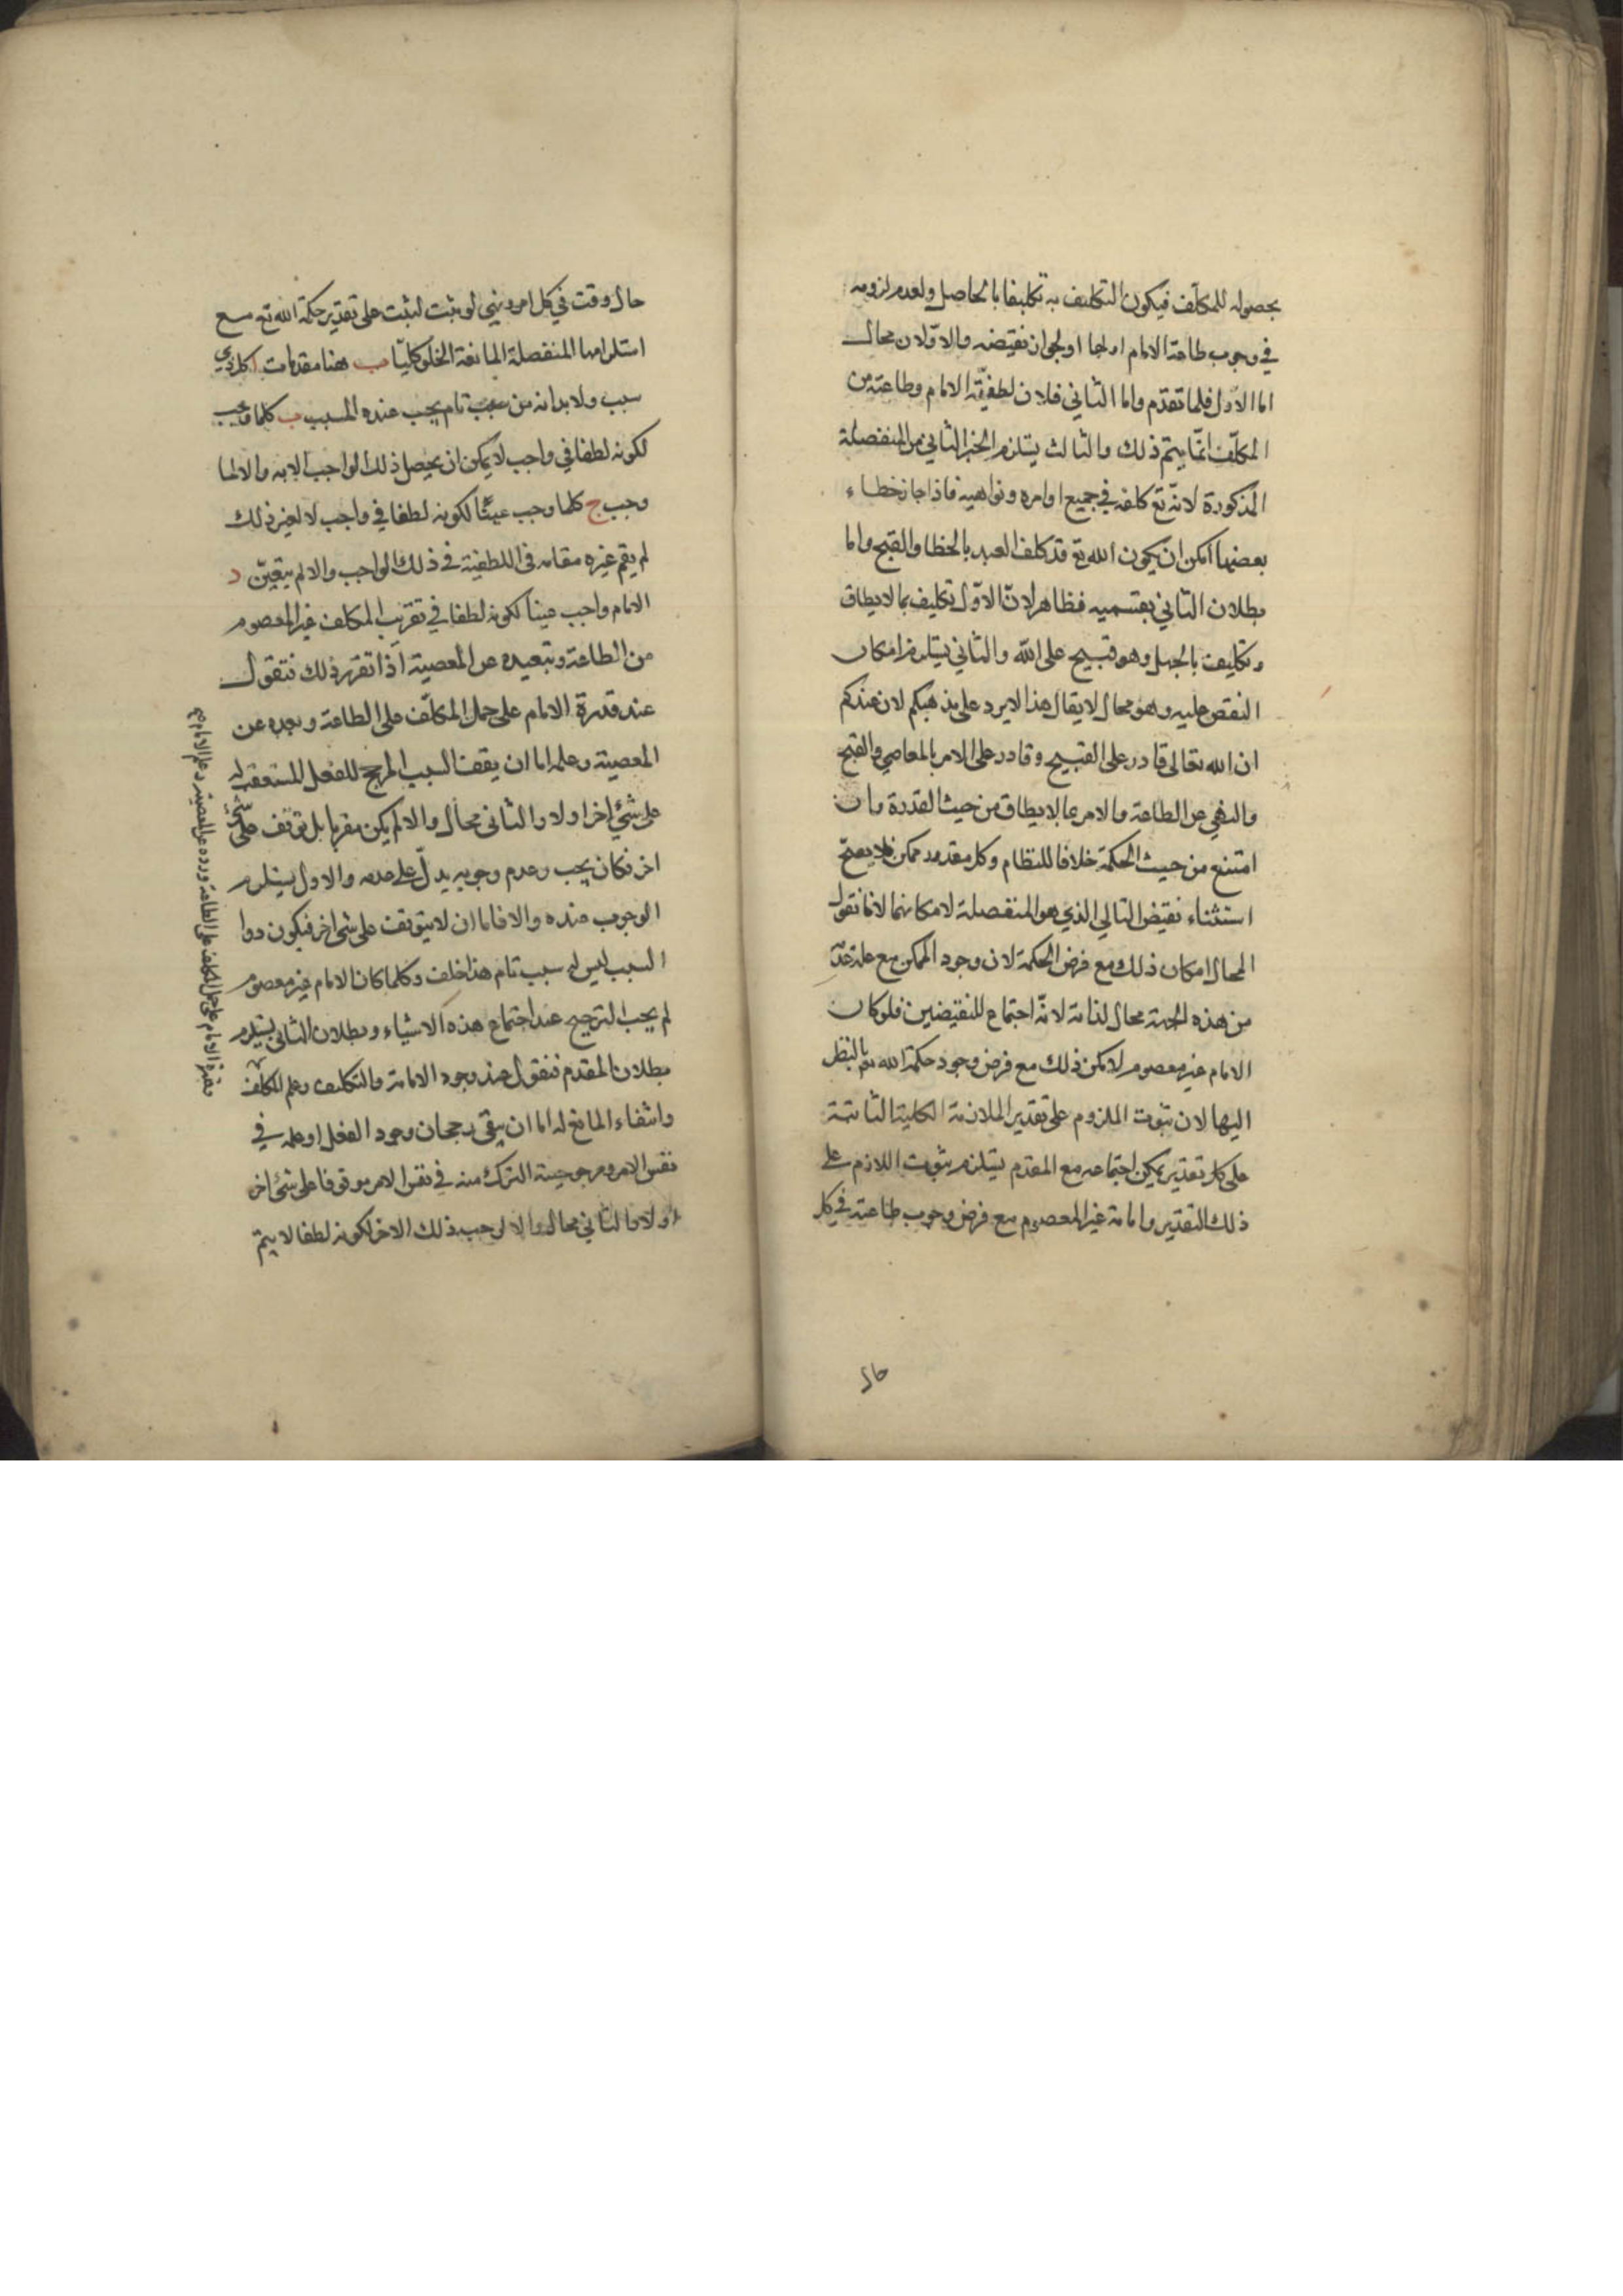 بحصوله للمكلف فيكون التكليف به تكليفا بالحاصل ولعدم لزومه
في وجوب طاعة الامام اولها او لجواز نقيضه والاولان محال
اما الاول فلما تقدم واما الثاني فلان لطفية الامام وطاعته من
المكلف انما يتم ذلك والثالث يستلزم الجزء الثاني من المنفصلة
المذكورة لانه تع كلفه في جميع اوامره ونواهيه فاذا جاز خطاء
بعضها امكن ان يكون الله تع قد كلف العبد بالخطا والقبح واما
بطلان الثاني بقسميه فظاهر لان الاول تكليف بما لا يطاق
وتكليف بالجهل وهو قبيح على الله والثاني يستلزم امكان
النقص عليه وهو محال لا يقال هذا لا يرد على مذهبكم لان عندكم
ان الله تعالى قادر على القبيح وقادر على الامر بالمعاصي والقبح
والنهي عن الطاعة والامر بما لا يطاق من حيث القدرة وان
امتنع من حيث الحكمة خلافا للنظام وكل مقدور ممكن فلا يصح
استثناء نقيض التالي الذي هو المنفصلة لامكانهما لانا نقول
المحال امكان ذلك مع فرض الحكمة لان وجود الممكن مع علة عدمه
من هذه الجهة محال لذاته لانه اجتماع للنقيضين فلو كان
الامام غير معصوم لامكن ذلك مع فرض وجود حكمة الله تع بالنظر
اليها لان ثبوت الملزوم على تقدير الملازمة الكلية الثابتة
على كل تقدير يمكن اجتماعه مع المقدم يستلزم ثبوت اللازم على
ذلك التقدير وامامة غير المعصوم مع فرض وجوب طاعته في كل
حال
حال وقت في كل امر ونهي لو ثبت لثبت على تقدير حكمة الله تع مع
استلزامها المنفصلة المانعة الخلو كليا ب هنا مقدمات ا كل ذي
سبب ولابد انه من سبب تام يجب عنده المسبب ب كلما وجب
لكونه لطفا في واجب لا يمكن ان يحصل ذلك الواجب الا به والا لما
وجب ج كلما وجب عينا لكونه لطفا في واجب لا لغير ذلك
لم يقم غيره مقامه في اللطفية في ذلك الواجب والا لم يتعين د
الامام واجب عينا لكونه لطفا في تقريب المكلف غير المعصوم
من الطاعة وتبعيده عن المعصية اذا تقرر ذلك فنقول
عند قدرة الامام على حمل المكلف على الطاعة وبعده عن
المعصية وعلمه اما ان يقف السبب المرجح للفعل المستعقب له
على شيء اخر اولا والثاني محال والا لم يكن مقربا بل توقف على شيء
اخر فكان يجب وعدم وجوبه يدل على عدمه والاول يستلزم
الوجوب عنده والا فاما ان لا يتوقف على شيء اخر فيكون ذوا
السبب ليس له سبب تام هذا خلف وكلما كان الامام غير معصوم
لم يجب الترجيح عند اجتماع هذه الاشياء وبطلان الثاني يستلزم
بطلان المقدم فنقول عند وجود الامامة والتكليف وعلم المكلف
وانتفاء المانع له اما ان يبقى رجحان وجود الفعل او علمه في
نفس الامر ومرجوحية الترك منه في نفس الامر موقوفا على شيء اخر
اولا فالثاني محال والا لوجب ذلك الاخر لكونه لطفا لا يتم
بقدرة الامام على حمل المكلف على الطاعة ورده عن المعصية وعلم الامام